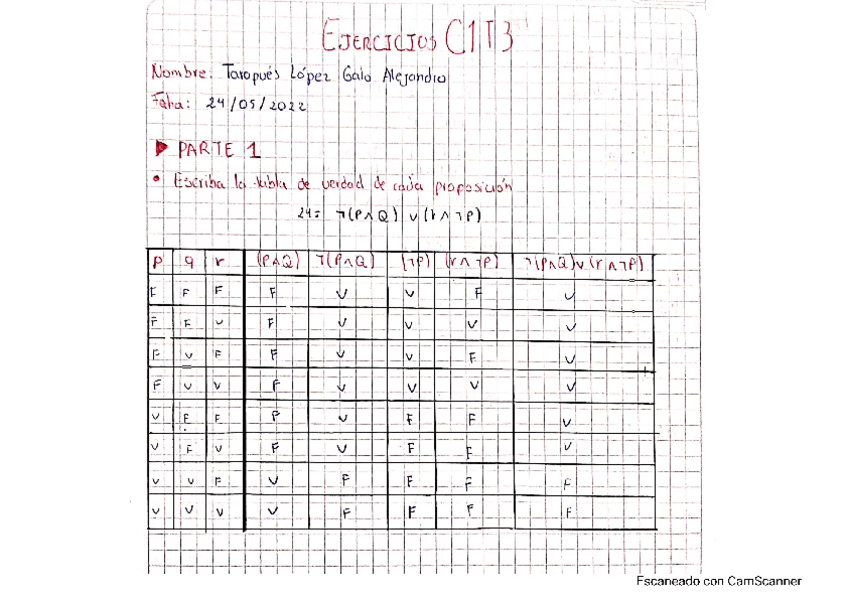 EJERCICIOS C1T3
Nombre: Tarapués López Galo Alejandro
Fecha: 24/05/2022
PARTE 1
• Escriba la tabla de verdad de cada proposición
24= ¬(P∧Q) ∨ (r∧¬P)
P q r (P∧Q) ¬(P∧Q) (¬P) (r∧¬P) ¬(P∧Q)∨(r∧¬P)
F F F F V V F V
F F V F V V V V
F V F F V V F V
F V V F V V V V
V F F F V F F V
V F V F V F F V
V V F V F F F F
V V V V F F F F
Escaneado con CamScanner